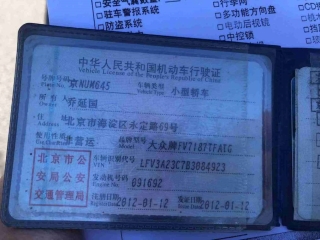 安全气囊
驻车警报系统
防盗系统
行李网
多功能方向盘
电动后视镜
中控锁
中华人民共和国机动车行驶证
Vehicle License of the People's Republic of China
号牌号码 京NUM645 车辆类型 小型轿车
所有人 乔延国
住址 北京市海淀区永定路69号
使用性质 非营运 品牌型号 大众牌FV7187TFATG
北京市公安局公安交通管理局
车辆识别代号 LFV3A23C7B3084923
发动机号码 09169Z
注册日期 2012-01-12 发证日期 2012-01-12